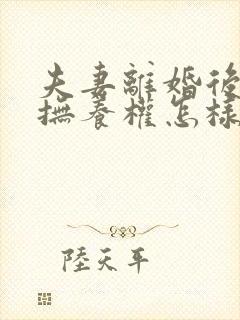 夫妻離婚後
撫養權怎樣
陸天平